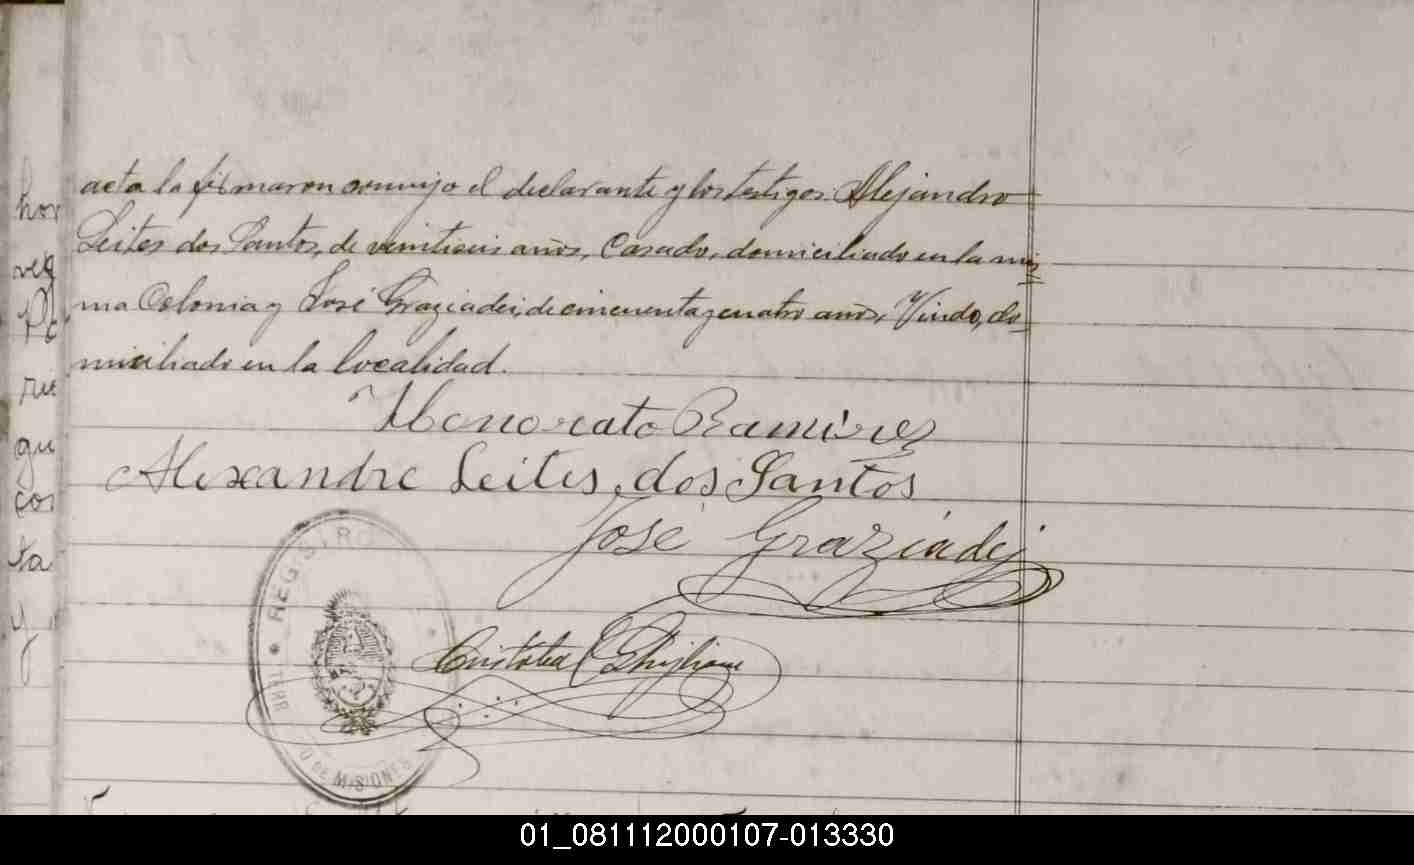 acta la firmaron conmigo el declarante y los testigos Alejandro
Leites dos Santos, de veintiseis años, Casado, domiciliado en la mis
ma Colonia y José Graziadei, de cincuenta y cuatro años, Viudo, do
miciliado en la localidad.
Honorato Ramirez
Alexandre Leites dos Santos
José Graziadei
Cristobal Ghiglione
REGISTRO
TERR O DE MISIONES
hor
veq
ru
gu
cor
ta
y
01_081112000107-013330